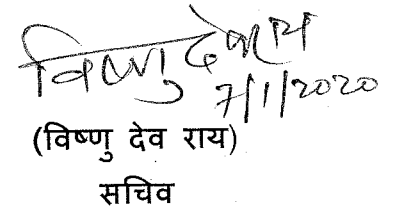 विष्णु देव राय
7/1/2020
(विष्णु देव राय)
सचिव